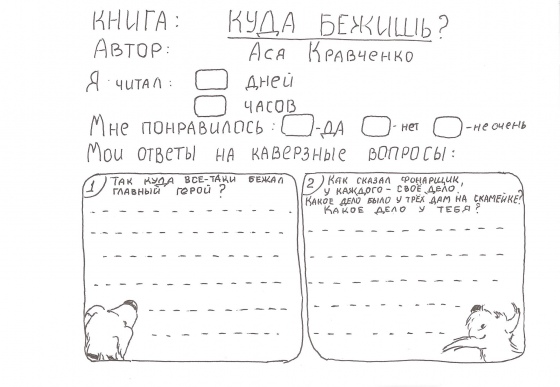 КНИГА: КУДА БЕЖИШЬ?
АВТОР: АСЯ КРАВЧЕНКО
Я ЧИТАЛ: ДНЕЙ
ЧАСОВ
МНЕ ПОНРАВИЛОСЬ: -ДА -НЕТ -НЕ ОЧЕНЬ
МОИ ОТВЕТЫ НА КАВЕРЗНЫЕ ВОПРОСЫ:
1 ТАК КУДА ВСЕ-ТАКИ БЕЖАЛ
ГЛАВНЫЙ ГЕРОЙ?
2 КАК СКАЗАЛ ФОНАРЩИК,
У КАЖДОГО - СВОЕ ДЕЛО.
КАКОЕ ДЕЛО БЫЛО У ТРЁХ ДАМ НА СКАМЕЙКЕ?
КАКОЕ ДЕЛО У ТЕБЯ?